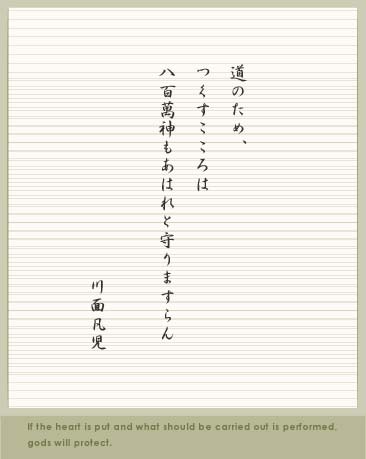 道のため、
つくすこころは
八百萬神もあはれと守りますらん
川面凡児
If the heart is put and what should be carried out is performed,
gods will protect.